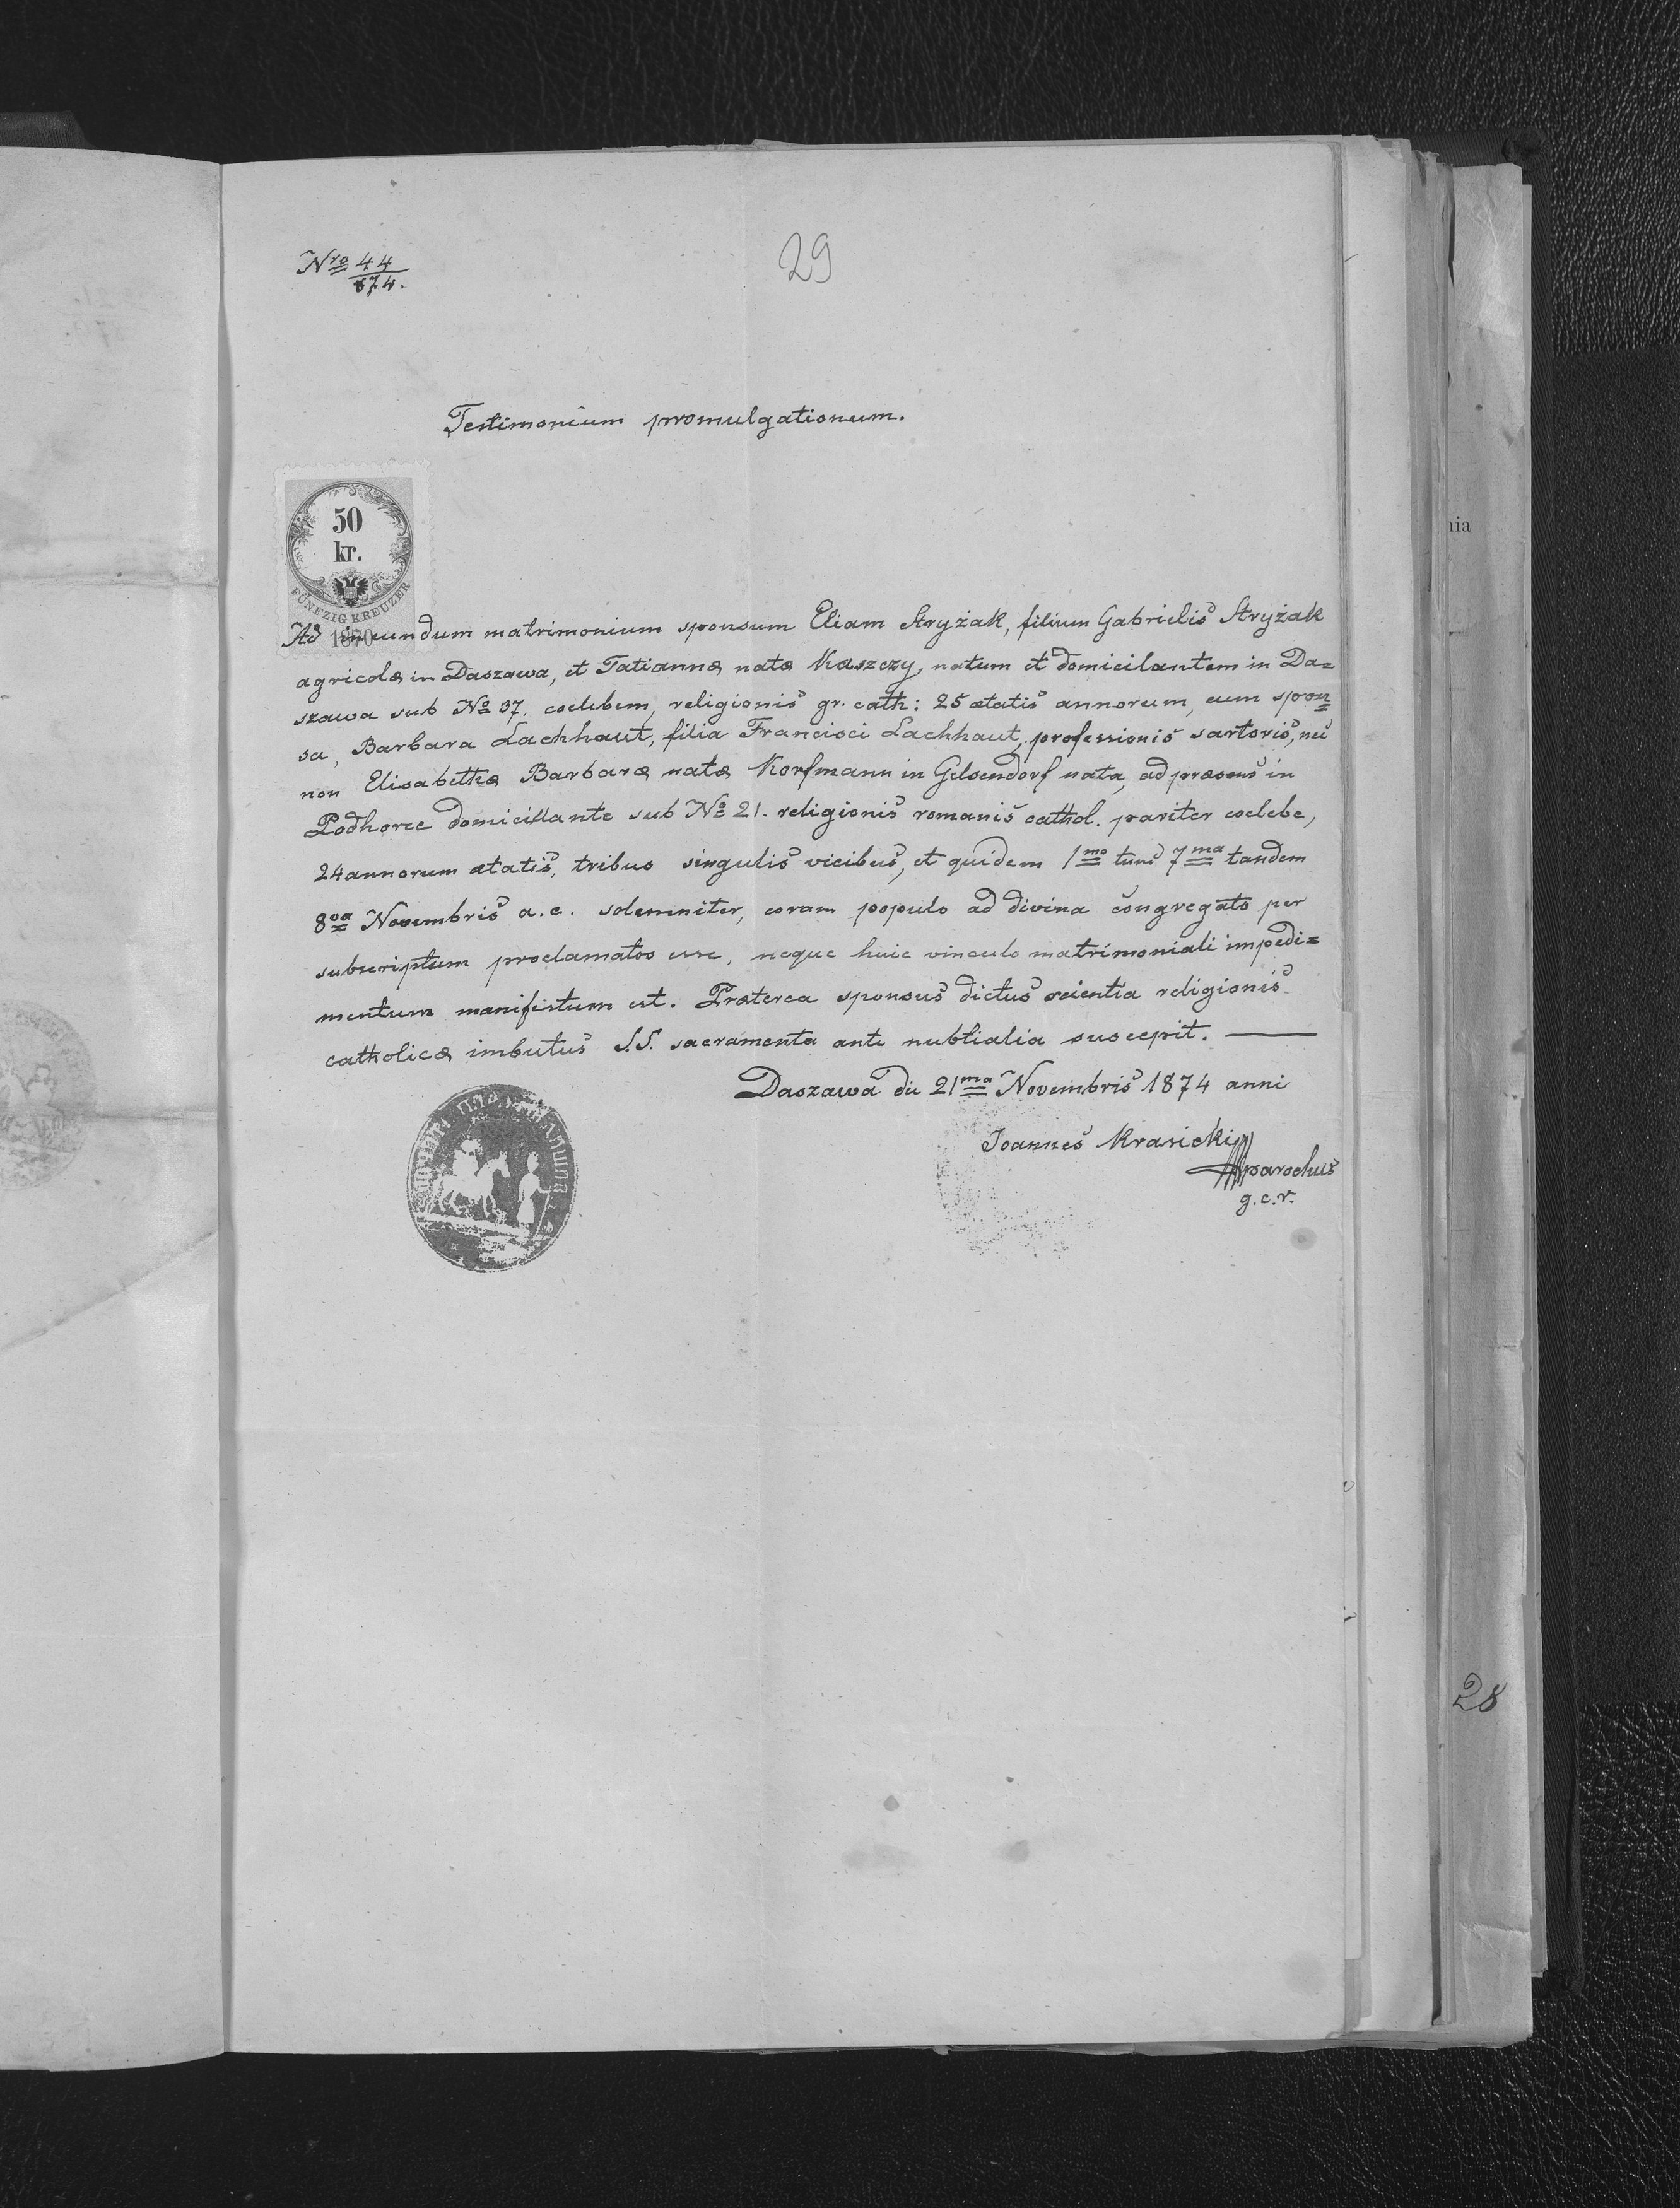 Nro 44
874.
29
Testimonium promulgationum.
50
kr.
FÜNFZIG KREUZER
1870
Ad ineundum matrimonium sponsum Eliam Stryżak, filium Gabrielis Stryżak
agricolæ in Daszawa, et Tatiannæ natæ Kaszczy, natum et domicilantem in Da=
szawa sub No 37. coelebem, religionis gr. cath: 25 ætatis annorum, cum spon=
sa, Barbara Lachhaut, filia Francisci Lachhaut, professionis sartoris, nec
non Elisabethæ Barbaræ natæ Korfmann in Gelsendorf nata, ad præsens in
Podhorce domicillante sub No 21. religionis romanis cathol. pariter coelebe,
24 annorum ætatis, tribus singulis vicibus, et quidem 1mo tum 7ma tandem
8va Novembris a.c. solemniter, coram populo ad divina congregato per
subscriptum proclamatos esse, neque huic vinculo matrimoniali impedi=
mentum manifestum est. Præterea sponsus dictus scientia religionis
catholicæ imbutus S.S. sacramenta ante nubtialia suscepit.
Daszawa die 21ma Novembris 1874 anni
Joannes Krasicki
parochus
g.c.r.
nia
28